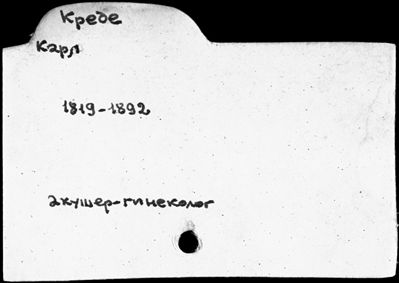 Креде
Карл
1819-1892
акушер-гинеколог